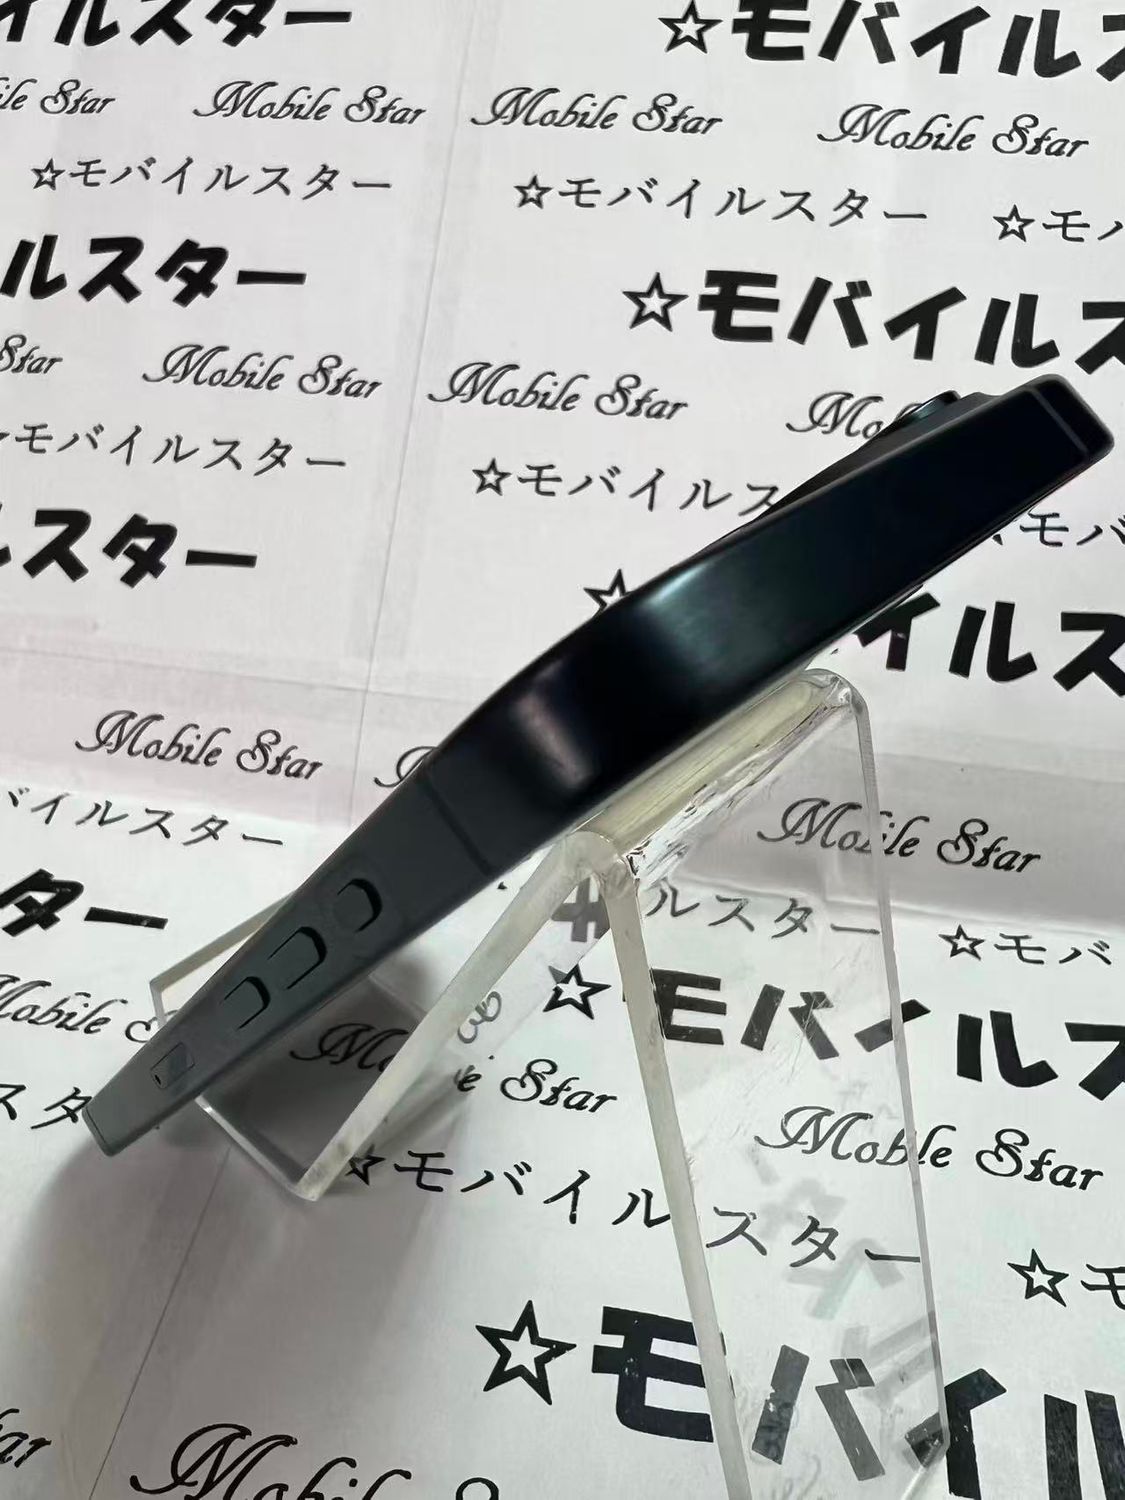 イルスター ☆モバイルス
ile Star Mobile Star Mobile Star Mobile Star
☆モバイルスター ☆モバイルスター ☆モバ
ルスター ☆モバイルス
Star Mobile Star Mobile Star Mo
モバイルスター ☆モバイルス
モバ
ルスター ☆ イルス
Mobile Star
バイルスター Mobile Star
ルスター ☆モバ
ター ☆モバイルス
Mobile Mo e Star Mobile Star
スタ ☆モバイルスター ☆モ
☆モバイ
ar Mobile